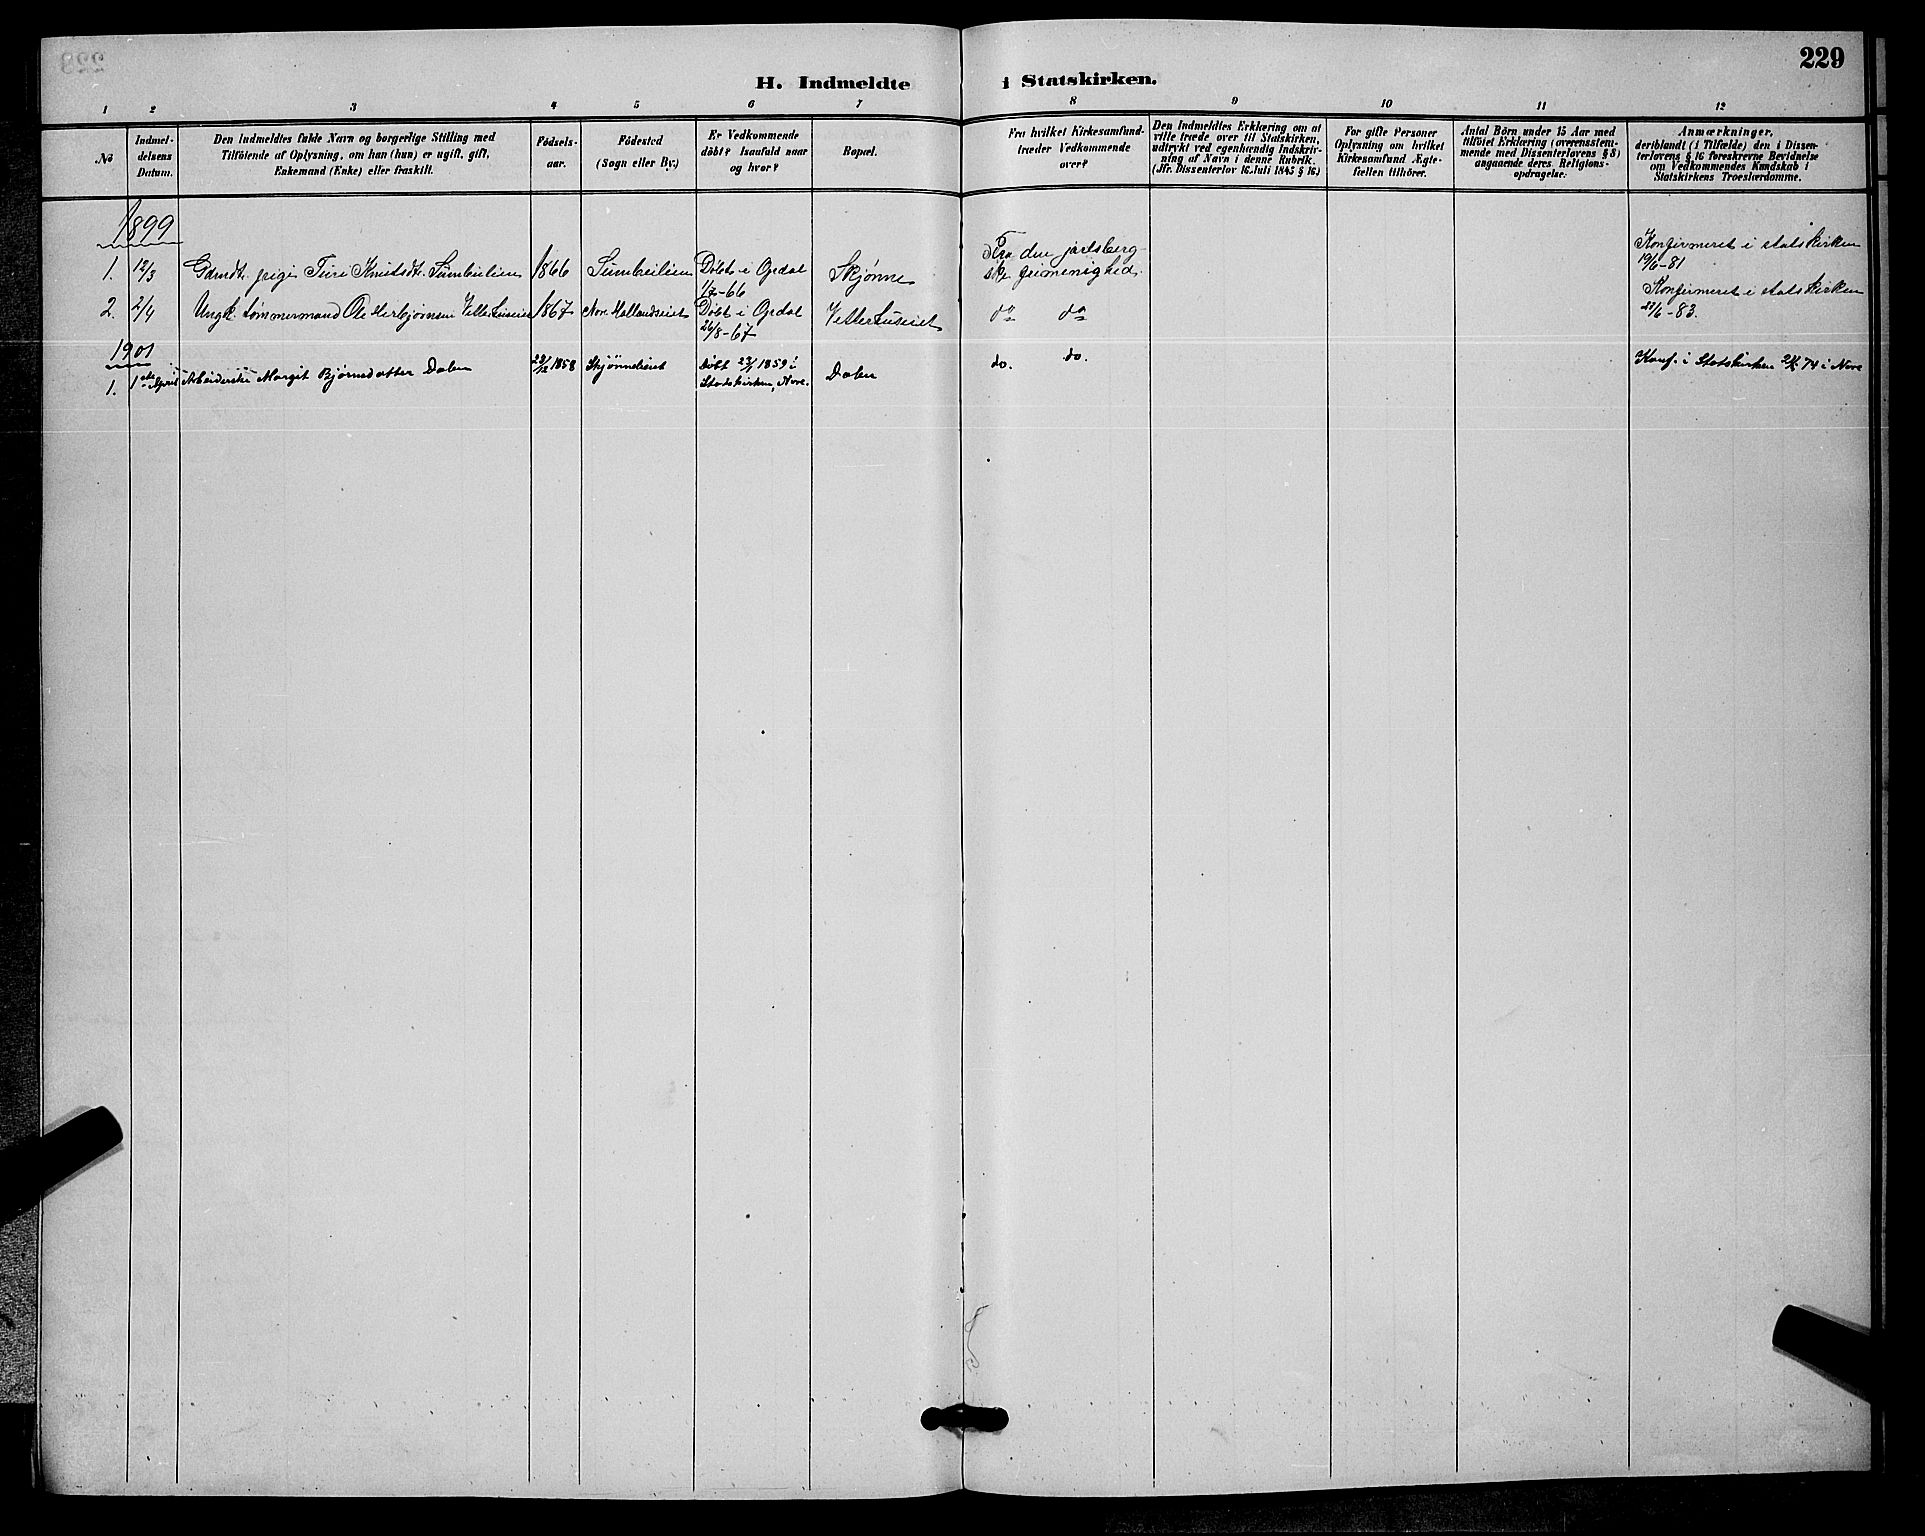 229
H. Indmeldte i Statskirken.
1 2 3 4 5 6 7 8 9 10 11 12
No
Indmel-
delsens
Datum.
Den Indmeldtes fulde Navn og borgerlige Stilling med
Tilföiende af Oplysning, om han (hun) er ugift, gift,
Enkemand (Enke) eller fraskilt.
Födsels-
aar.
Födested
(Sogn eller By.)
Er Vedkommende
döbt? Isaafald naar
og hvor?
Bopæl.
Fra hvilket Kirkesamfund
træder Vedkommende
over?
Den Indmeldtes Erklæring om at
ville træde over til Statskirken,
udtrykt ved egenhændig Indskriv-
ning af Navn i denne Rubrik.
(Jfr. Dissenterlov 16 Juli 1845 § 16)
For gifte Personer
Oplysning om hvilket
Kirkesamfund Ægte-
fællen tilhörer.
Antal Börn under 15 Aar med
tilföiet Erklæring (overensstem-
mende med Dissenterlovens § 8)
angaaende deres Religions-
opdragelse.
Anmærkninger,
deriblandt (i Tilfælde) den i Dissen-
terlovens § 16 foreskrevne Bevidnelse
om Vedkommendes Kundskab i
Statskirkens Troeslærdomme.
1899
1. 12/3 Gdmdt. pige Turi Knutsdt. 1866 Døbt i Opdal Skjønne Fra den jarlsberg-
ske menighed. Konfirmeret i statskirken
19/6-81
2. 2/4 Ungk. Tømmermand Ole Herbjørnsen 1867 Nore Hallandseiet Døbt i Opdal
26/8-67 do do Konfirmeret i statskirken
-83.
1901
1. 1ste April Arbeiderske Margit Bjørnsdatter Dalen 1858 Skjønneeiet Døbt 1859 i
Statskirken, Nore. Dalen do. do. Konf. i Statskirken 74 i Nore